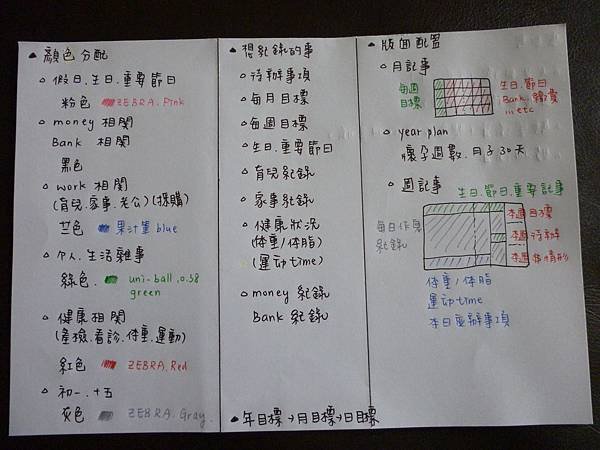 ▲ 顏色分配
○ 假日.生日.重要節日
粉色 ZEBRA. Pink
○ money 相關
Bank 相關
黑色
○ work 相關
(育兒.家事.老公)(採購)
藍色 果汁筆 blue
○ 個人.生活雜事
綠色. uni-ball.0.38
green
○ 健康相關
(產檢.看診.体重.運動)
紅色 ZEBRA. Red
○ 初一.十五
灰色 ZEBRA. Gray.
▲ 想紀錄的事
○ 待辦事項
○ 每月目標
○ 每週目標
○ 生日.重要節日
○ 育兒紀錄
○ 家事紀錄
○ 健康狀況
(体重/体脂)
(運动time)
○ money 紀錄
Bank 紀錄
▲ 年目標→月目標→日目標
▲ 版面配置
○ 月記事
每週
目標
生日.節日
Bank.
...etc
○ year plan
懷孕週數.月子30天
○ 週記事
生日.節日.重要記事
每日作息
紀錄
本週目標
本週待辦
本週
体重/体脂
運动time
本日亟辦事項